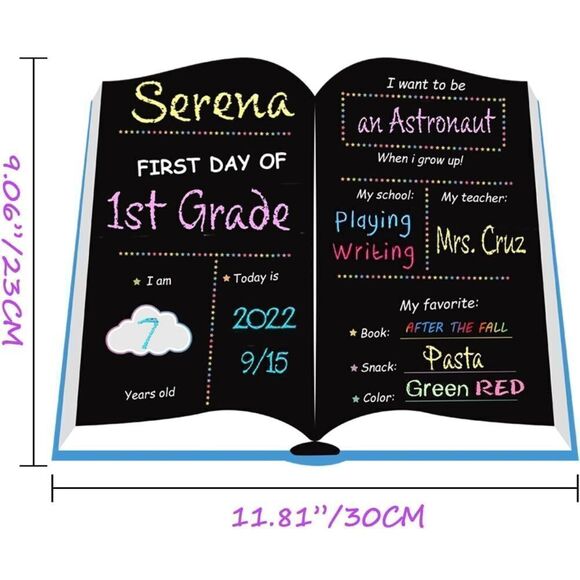 Serena
FIRST DAY OF
1st Grade
I am
7
Years old
Today is
2022
9/15
I want to be
an Astronaut
When i grow up!
My school:
Playing
Writing
My teacher:
Mrs. Cruz
My favorite:
Book: AFTER THE FALL
Snack: Pasta
Color: Green RED
9.06”/23CM
11.81”/30CM